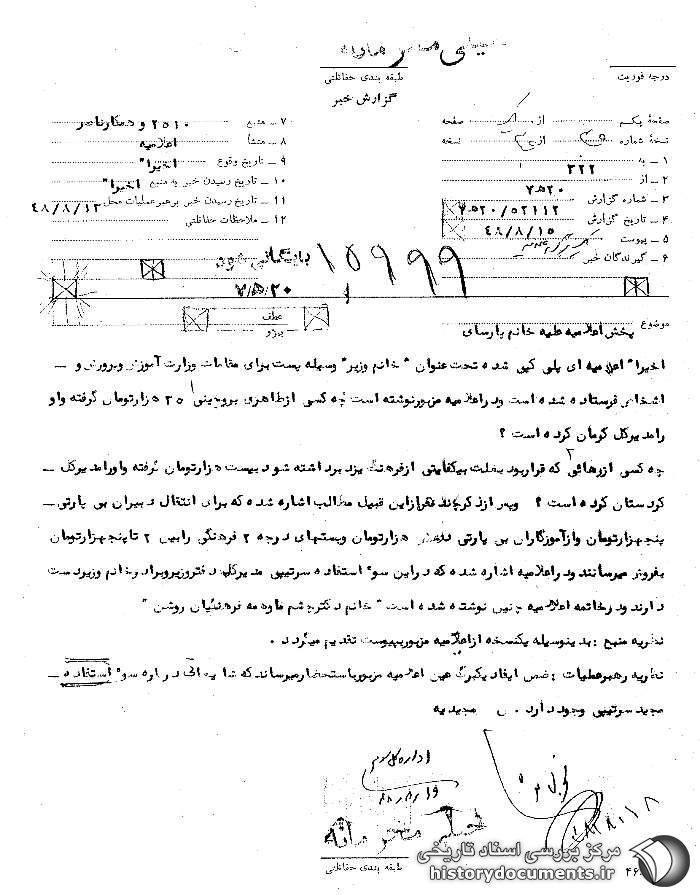 درجه فوریت
طبقه بندی حفاظتی
گزارش خبر
صفحه یکم از یک صفحه
نسخه شماره از نسخه
۱ – به ۳۲۲
۲ – از ۷ ه‍ ۲۰
۳ – شماره گزارش ۷ ه‍ ۲۰/۵۲۱۱۲
۴ – تاریخ گزارش ۴۸/۸/۱۵
۵ – پیوست
۶ – گیرندگان خبر
۷ – منبع ۲۵۱۰ و همکار ناصر
۸ – منشأ اعلامیه
۹ – تاریخ وقوع اخیرا"
۱۰ – تاریخ رسیدن خبر به منبع اخیرا"
۱۱ – تاریخ رسیدن خبر برهبر عملیات محل ۴۸/۸/۱۲
۱۲ – ملاحظات حفاظتی
بایگانی شود
۱۵۹۹۹
۷ ه‍ ۲۰
عطف
پیرو
موضوع پخش اعلامیه علیه خانم پارسای
اخیرا" اعلامیه ای پلی کپی شده تحت عنوان " خانم وزیر" وسیله پست برای مقامات وزارت آموزش و پرورش و –
اشخاص فرستاده شده است و در اعلامیه مزبور نوشته است چه کسی از طاهری بروجنی ۲۵ هزارتومان گرفته و او
را مدیرکل کرمان کرده است ؟
چه کسی از که قرار بود بعلت بیکفایتی از فرهنگ یزد برداشته شود بیست هزارتومان گرفته و اورا مدیرکل –
کردستان کرده است ؟ و پس از ذکر چند فقره از این قبیل مطالب اشاره شده که برای انتقال دبیران بی پارتی –
پنجهزارتومان و از آموزگاران بی پارتی هزارتومان و پستهای درجه ۲ فرهنگی را بین ۲ تا پنجهزارتومان
بفروش میرسانند و در اعلامیه اشاره شده که در این سوء استفاده سرتیپی مدیرکل دفتر وزیر و برادر خانم وزیر دست
دارند و در خاتمه اعلامیه چنین نوشته شده است " خانم دکتر چشم فرهنگیان روشن "
نظریه منبع : بدینوسیله یکنسخه از اعلامیه مزبور بپیوست تقدیم میگردد .
نظریه رهبر عملیات : ضمن ایفاد یکبرگ عین اعلامیه مزبور باستحضار میرساند که شایعاتی در باره سوء استفاده –
مجید سرتیپی وجود دارد . س مجیدیه
اداره کل سوم
۴۸/۸/۱۹
۴۸/۸/۱۸
خیلی محرمانه
طبقه بندی حفاظتی
مرکز بررسی اسناد تاریخی
historydocuments.ir